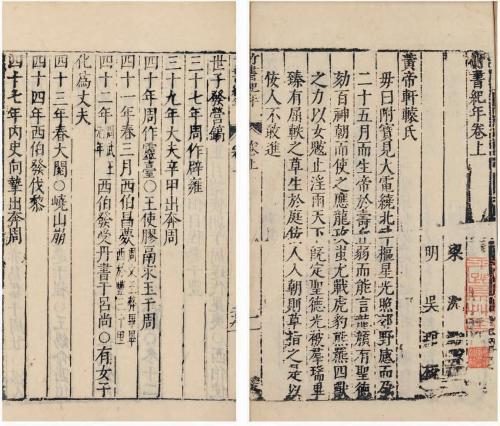 竹書紀年卷上
梁 沈
明 吳琯校
黃帝軒轅氏
母曰附寶見大電繞北斗樞星光照郊野感而孕
二十五月而生帝於壽丘弱而能言龍顏有聖德
劾百神朝而使之應龍攻蚩尤戰虎豹熊羆四獸
之力以女魃止淫雨天下既定聖德光被羣瑞畢
臻有屈軼之草生於庭佞人入朝則草指之是以
佞人不敢進
竹書紀年 卷上
世子發營鎬
三十七年周作辟雍
三十九年大夫辛甲出奔周
四十年周作靈臺○王使膠鬲求玉于周
四十一年春三月西伯昌薨周文王葬畢畢西於豐三十里
四十二年周武王元年西伯發受丹書于呂尚○有女子
化爲丈夫
四十三年春大閱○嶢山崩
四十四年西伯發伐黎
四十七年内史向摯出奔周